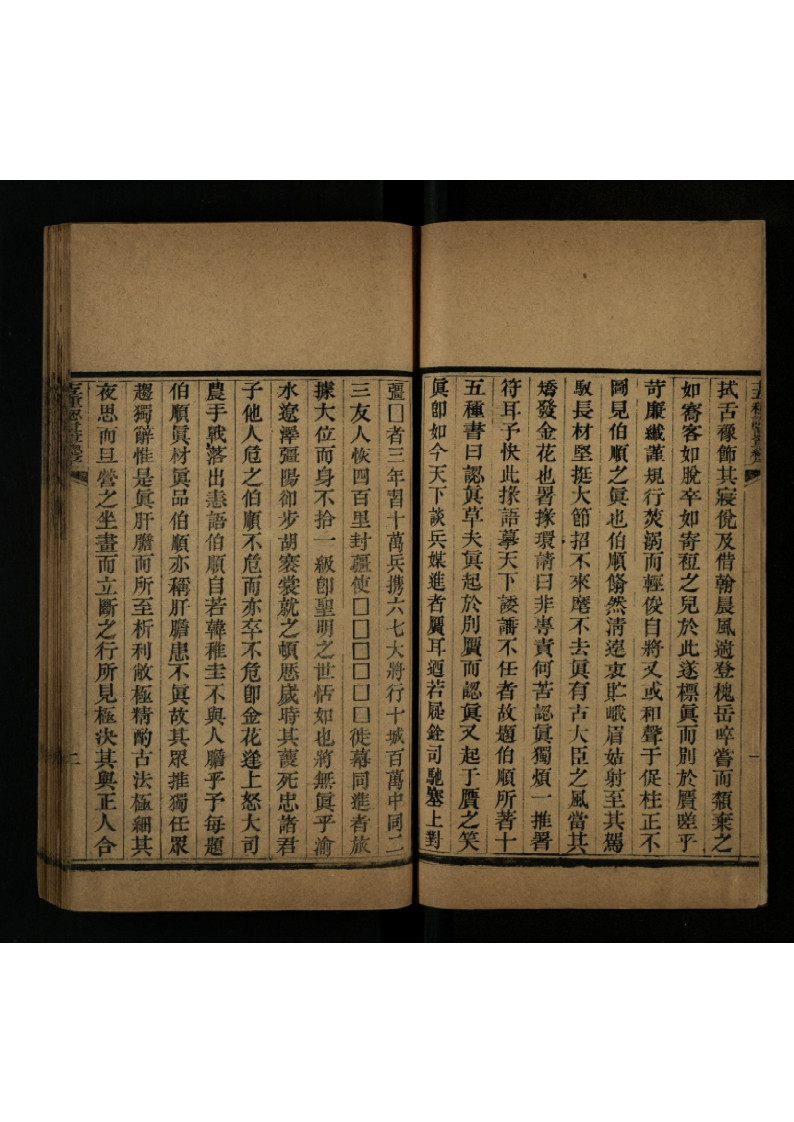 拭舌襐飾其寢倪及借翰晨風適登槐岳啐嘗而纇棄之
如窩客如脫卒如寄秬之兒於此遂標眞而別於贋嗟乎
苛廉纎謹規行焚溺而輕俊自將又或和聲于促柱正不
圖見伯順之眞也伯順翛然淸遠衷貯峨眉姑射至其駕
馭長材堅挺大節招不來麾不去眞有古大臣之風當其
矯發金花也署掾環請曰非專責何苦認眞獨煩一推署
符耳予快此掾語摹天下諉諈不任者故題伯順所著十
五種書曰認眞草夫眞起於別贋而認眞又起于贋之笑
眞卽如今天下談兵媒進者贋耳廼若屐銓司馳塞上對
疆□者三年習十萬兵携六七大將行十城百萬中同二
三友人恢四百里封疆使□□□□□□徙幕同進者旅
據大位而身不拾一級卽聖明之世恬如也將無眞乎渝
水遼澤彊陽卻步胡寨裳就之頓歷歲時其護死忠諸君
子他人危之伯順不危而亦卒不危卽金花逢上怒大司
農手戰落出恚語伯順自若韓稚圭不與人膽乎予每題
伯順眞材眞品伯順亦稱肝膽患不眞故其眾推獨任眾
趨獨解惟是眞肝膽而所至析利敝極精酌古法極細其
夜思而旦營之坐畫而立斷之行所見極決其與正人合
一
二